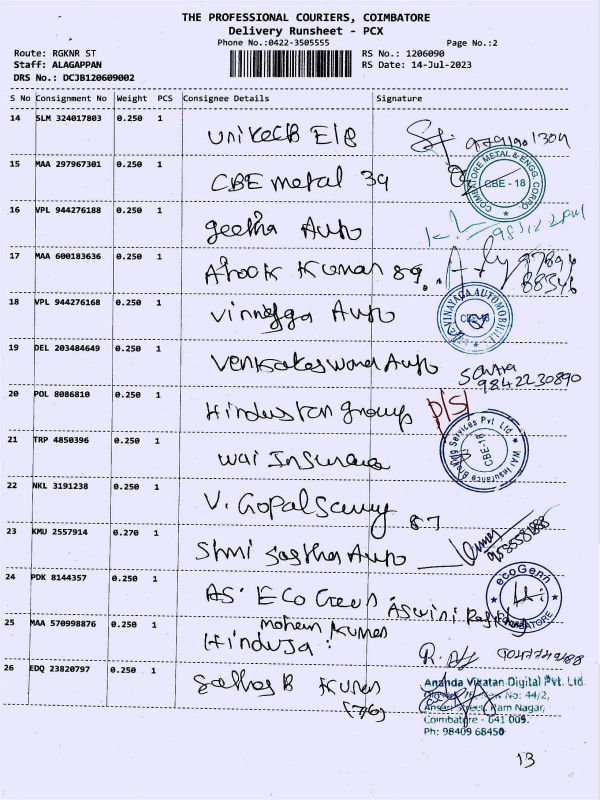 THE PROFESSIONAL COURIERS, COIMBATORE
Delivery Runsheet - PCX
Phone No.:0422-3505555 Page No.:2
Route: RGKNR ST RS No.: 1206090
Staff: ALAGAPPAN RS Date: 14-Jul-2023
DRS No.: DCJB120609002
S No Consignment No Weight PCS Consignee Details Signature
14 SLM 324017803 0.250 1
15 MAA 297967301 0.250 1 CBE metal 39
COIMBATORE METAL & ENGG. CORPN CBE - 18
16 VPL 944276188 0.250 1 geetha Auto
17 MAA 600183636 0.250 1 Ashok Kumar 89
18 VPL 944276168 0.250 1 Vinayga Auto
VINAYAGA AUTOMOBILE
19 DEL 203484649 0.250 1 Venkateswara Auto
9842230890
20 POL 8086810 0.250 1 Hindustan group
21 TRP 4850396 0.250 1 Wai Insurance
Wai Insurance Broking Services Pvt Ltd CBE-18
22 NKL 3191238 0.250 1 V. Gopalsamy 87
23 KMU 2557914 0.270 1 Shri Sastha Auto
24 PDK 8144357 0.250 1 AS. Eco Green
ecoGenn COIMBATORE
25 MAA 570998876 0.250 1 mohan Kumar
Hinduja
26 EDQ 23820797 0.250 1 Sathas B Kumar
(76)
Ananda Vikatan Digital Pvt. Ltd.
New No: 44/2,
Ansari Street, Ram Nagar,
Coimbatore - 641 009.
Ph: 98409 68450
13